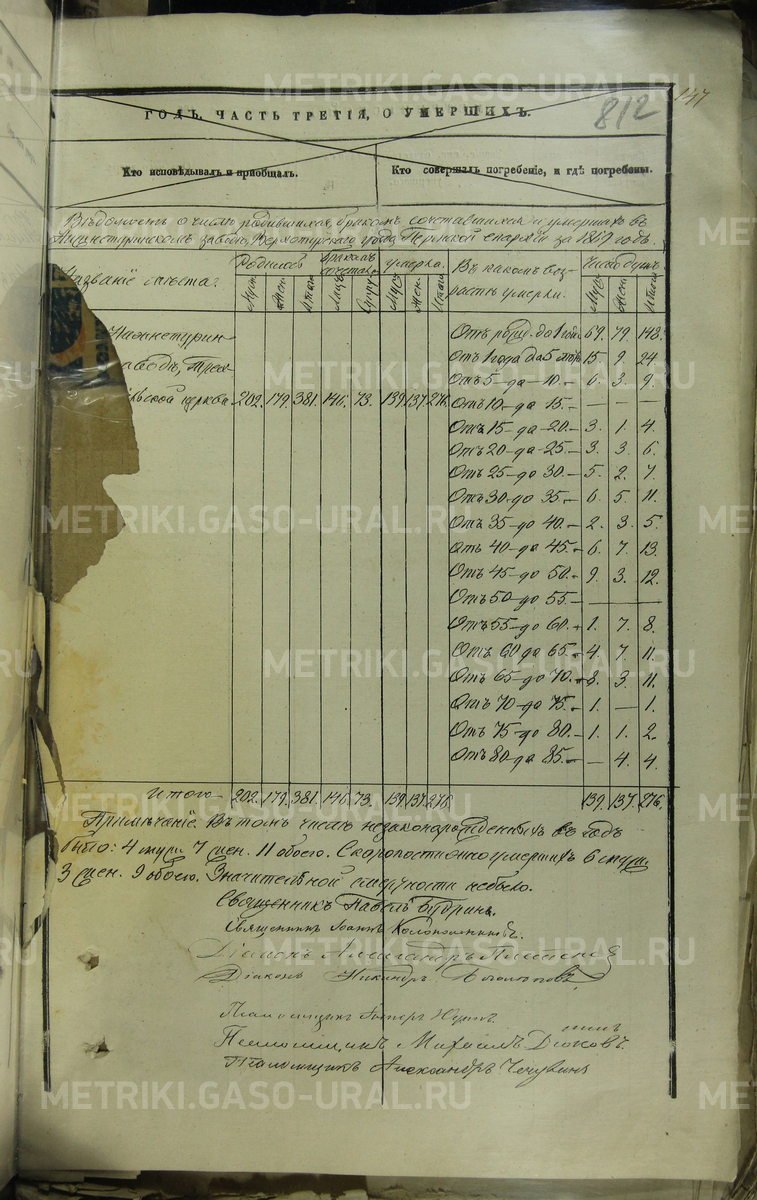 147
812
ГОДЪ, ЧАСТЬ ТРЕТІЯ, О УМЕРШИХЪ.
Кто исповѣдывалъ и пріобщалъ. Кто совершалъ погребеніе, и гдѣ погребены.
Вѣдомость о числѣ родившихся, бракомъ сочетавшихся и умершихъ въ
заводѣ, Верхотурскаго уѣзда Пермской епархіи за 18 годъ.
Названіе мѣста. Родилось бракомъ сочетал. умерло. Въ какомъ воз- Число душъ.
Муж. Жен. Итого Муж. Жен. Итого растѣ умерли. Муж. Жен. Итого
Отъ рожд. до 1 года 69. 79. 148.
заводѣ, Отъ 1 года до 5 15. 9. 24
Отъ 5 до 10. 6. 3. 9.
церкви 202. 179. 381. 146. 73. 139. 137. 276. Отъ 10 до 15. — — —
Отъ 15 до 20. 3. 1. 4.
Отъ 20 до 25. 3. 3. 6.
Отъ 25 до 30. 5. 2. 7.
Отъ 30 до 35. 6. 5. 11.
Отъ 35 до 40. 2. 3. 5.
Отъ 40 до 45. 6. 7. 13.
Отъ 45 до 50. 9. 3. 12.
Отъ 50 до 55. — — —
Отъ 55 до 60. 1. 7. 8.
Отъ 60 до 65. 4. 7. 11.
Отъ 65 до 70. 8. 3. 11.
Отъ 70 до 75. 1. — 1.
Отъ 75 до 80. 1. 1. 2.
Отъ 80 до 85. — 4. 4.
Итого 202. 179. 381. 146. 73. 139. 137. 276. 139. 137. 276.
Примѣчаніе. Въ томъ числѣ незаконорожденныхъ въ годъ
было: 4 муж. 7 жен. 11 обоего. Скоропостижно умершихъ 6 муж.
3 жен. 9 обоего. Значительной смертности небыло.
Священникъ Павелъ Будринъ.
Священникъ Іоаннъ
Діаконъ Александръ
Діаконъ Никандръ
Псаломщикъ
Псаломщикъ Михаилъ
Псаломщикъ Александръ Чечулинъ
METRIKI.GASO-URAL.RU